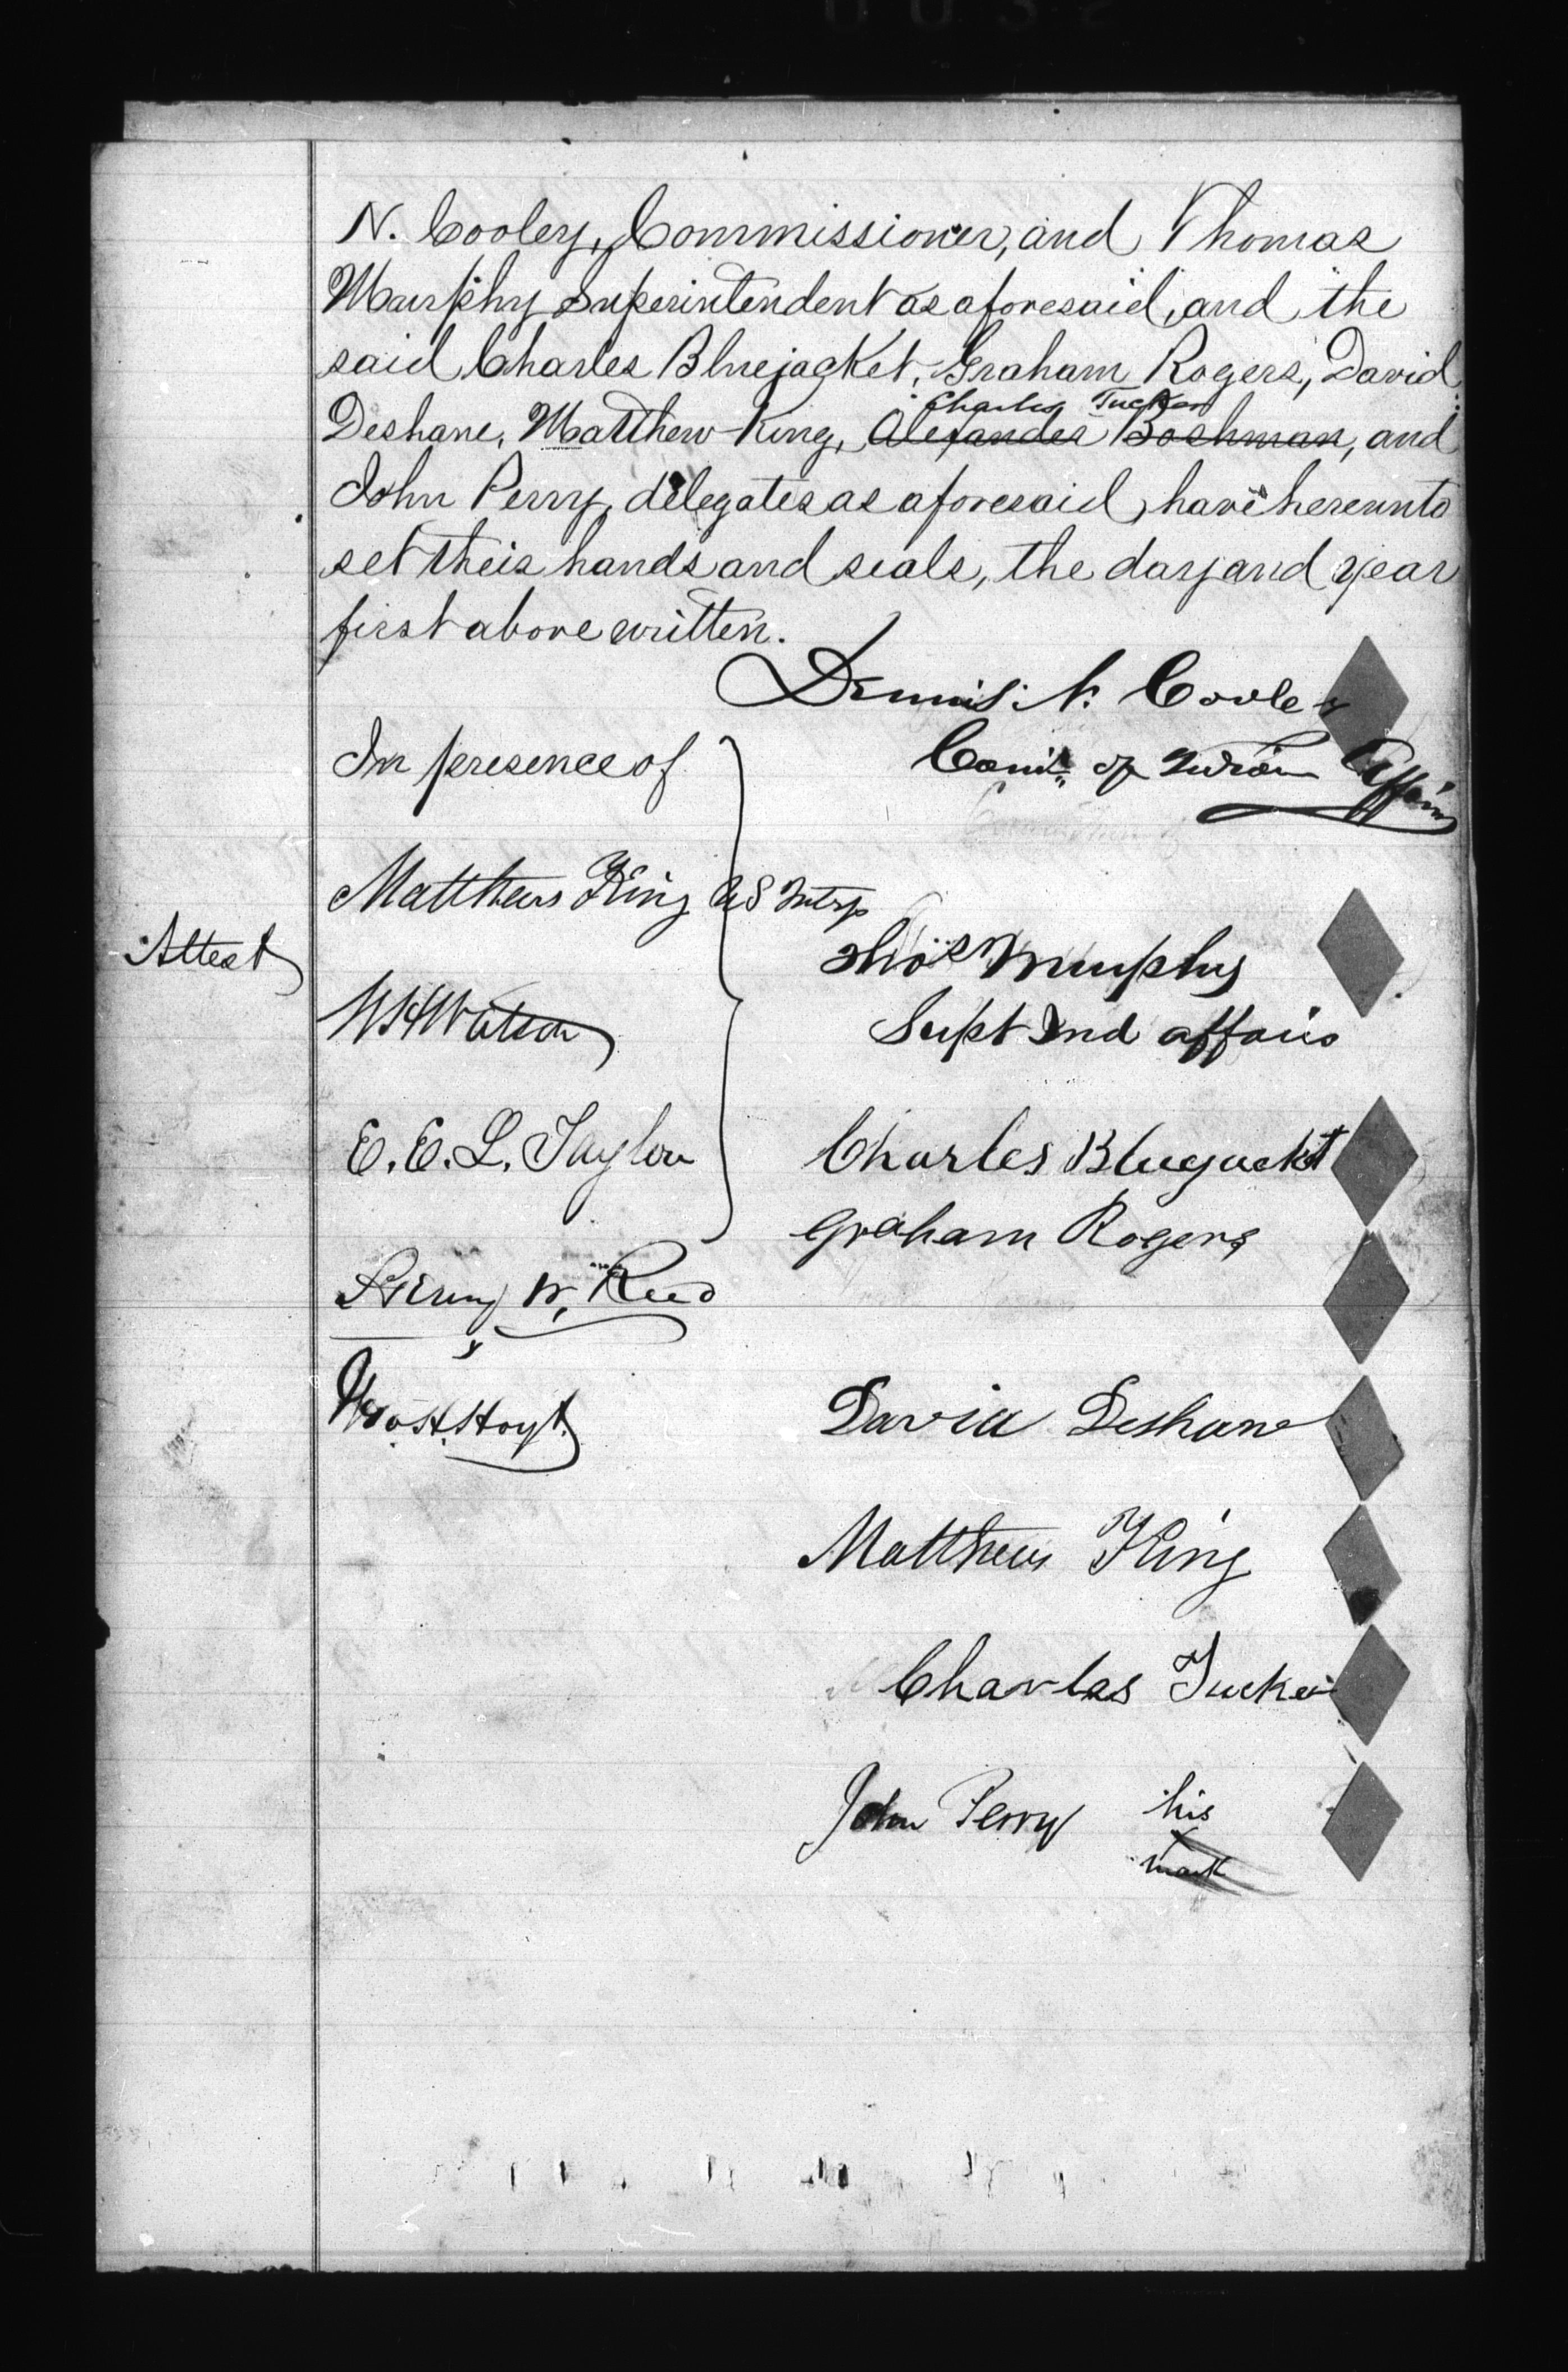 N. Cooley, Commissioner, and Thomas
Murphy Superintendent as aforesaid, and the
said Charles Bluejacket, Graham Rogers, David
Charles Tucker
Deshane, Matthew King, Alexander Boshman, and
John Perry, delegates as aforesaid, have hereunto
set their hands and seals, the day and year
first above written.
Dennis N. Cooley
Comr. of Indian Affairs
In presence of
Matthew King US Intrp
Attest
Thos Murphy
Supt Ind affairs
W H Watson
E. E. L. Taylor
Charles Bluejacket
Graham Rogers
W. Reed
Wm H. Hoyt.
David Deshane
Matthew King
Charles Tucker
John Perry his
mark